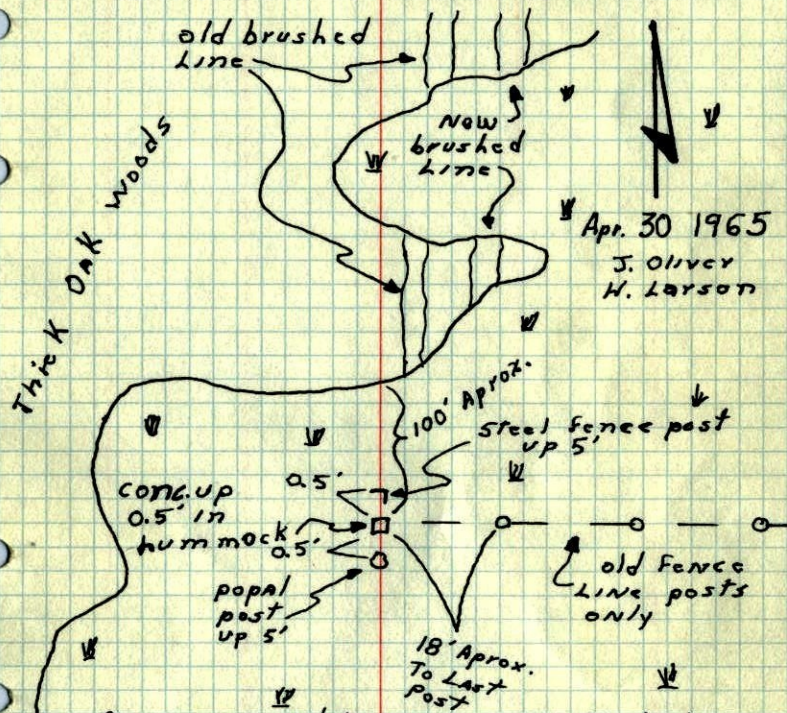 old brushed
Line
New
brushed
Line
Thick Oak Woods
Apr. 30 1965
J. Oliver
W. Larson
100' Aprox.
Steel fence post
up 5'
0.5'
conc. up
0.5' in
hummock
0.5'
popal
post
up 5'
old Fence
Line posts
only
18' Aprox.
To Last
post